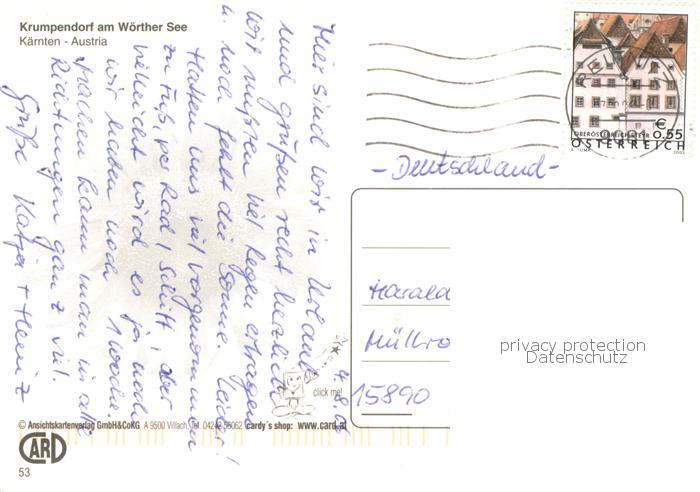 Krumpendorf am Wörther See
Kärnten - Austria
4.8.06
Hier sind wir in Urlaub
und grüßen recht herzlich
Wir mußten viel Regen ertragen
u. noch fehlt die Sonne. Leider!
Hatten uns viel vorgenommen
zu Fuß, per Rad, Schiff, aber
vielleicht wird es ja noch
wir haben noch 1 Woche.
Machen kann man in alle
Richtungen ganz viel.
Grüße Katja + Heinz
ÖBERÖSTERREICH
€ 0,55
ÖSTERREICH
-Deutschland-
Harald
Müllro
15890
privacy protection
Datenschutz
click me!
© Ansichtskartenverlag GmbH&CoKG A 9500 Villach, Tel. 04242-56062 cardy´s shop: www.card.at
CARD
53